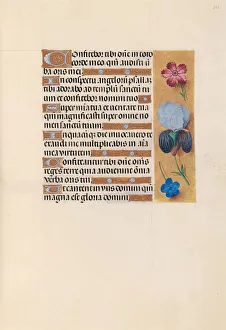 Confitebor tibi dñe in toto
corde meo qm̃ audisti ũ
ba oris mei
In conspectu angeloꝝ psallaꝫ
tibi adorabo ad templũ sanctũ tu
um et confitebor nomini tuo
Super misericordia tua et ueri
tate tua qm̃ magnificasti super omne no
men sanctũ tuum
In quacũqꝫ die inuocauero te ex
audi me multiplicabis in aĩa
mea uirtutem
Confiteantur tibi dñe om̃s
reges terre quia audierunt om̃ia
uerba oris tui
Et cantent in uiis domini qm̃
magna est gloria domini